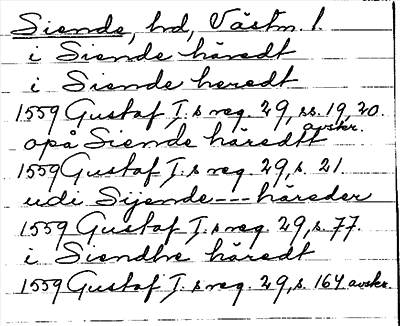 Siende, hd, Västm. l.
i Siende häredt
i Siende heredt
1559 Gustaf I.s reg. 29, ss. 19, 20.
avskr.
opå Siende häredtt
1559 Gustaf I.s reg. 29, s. 21.
udi Sijende --- häreder
1559 Gustaf I.s reg. 29, s. 77.
i Siendhe häredt
1559 Gustaf I.s reg. 29, s. 164 avskr.